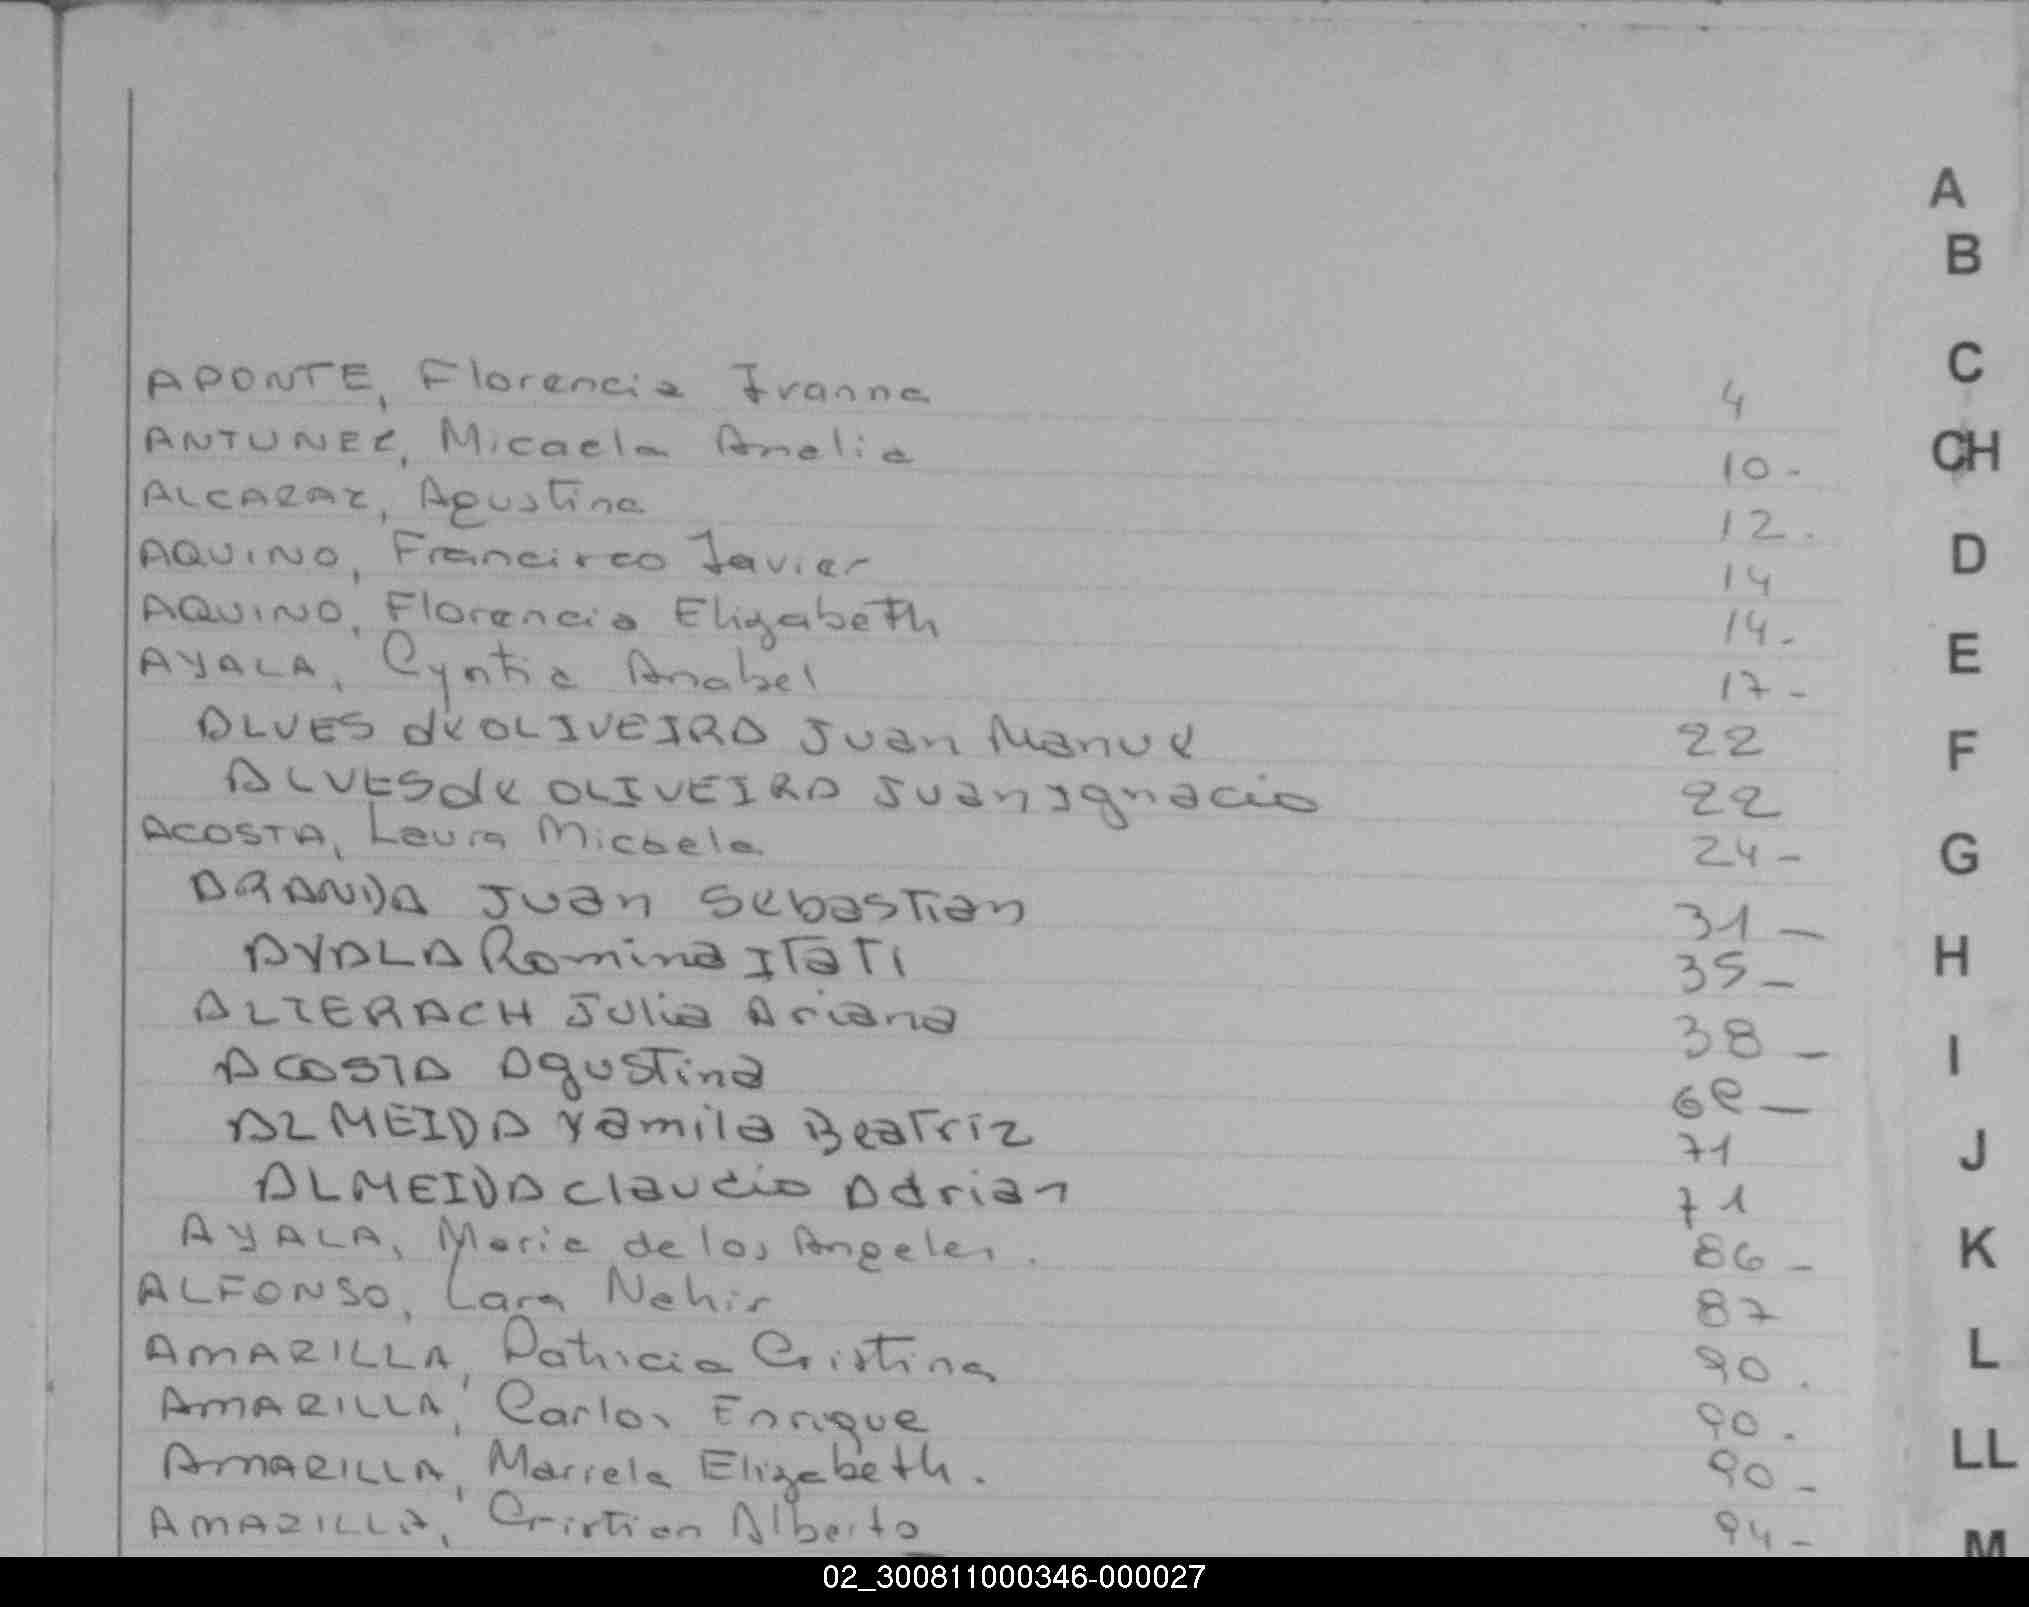 A
B
C
APONTE, Florencia Ivanna 4
CH
ANTUNEZ, Micaela Analia 10-
ALCARAZ, Agustina 12.
D
AQUINO, Francisco Javier 14
AQUINO, Florencia Elizabeth 14-
E
AYALA, Cyntia Anabel 17-
ALVES de OLIVEIRA Juan Manuel 22
F
ALVES de OLIVEIRA Juan Ignacio 22
ACOSTA, Laura Micaela 24-
G
ARANDA Juan Sebastian 31-
AYALA Romina Itati 35-
H
ALTERACH Julia Ariana 38-
I
ACOSTA Agustina 69-
ALMEIDA Yamila Beatriz 71
J
ALMEIDA Claudio Adrian 71
AYALA, Maria de los Angeles. 86-
K
ALFONSO, Lara Nahir 87
AMARILLA, Patricia Cristina 90.
L
AMARILLA, Carlos Enrique 90.
AMARILLA, Mariela Elizabeth. 90-
LL
AMARILLA, Cristian Alberto 94-
M
02_300811000346-000027